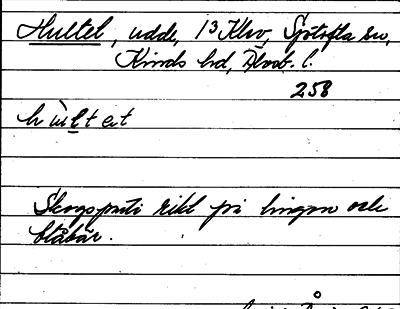 Hultet, udde, 13 Klev, Sjötofta sn,
Kinds hd, Älvsb. l.
258
Skogsparti rikt på lingon och
blåbär.